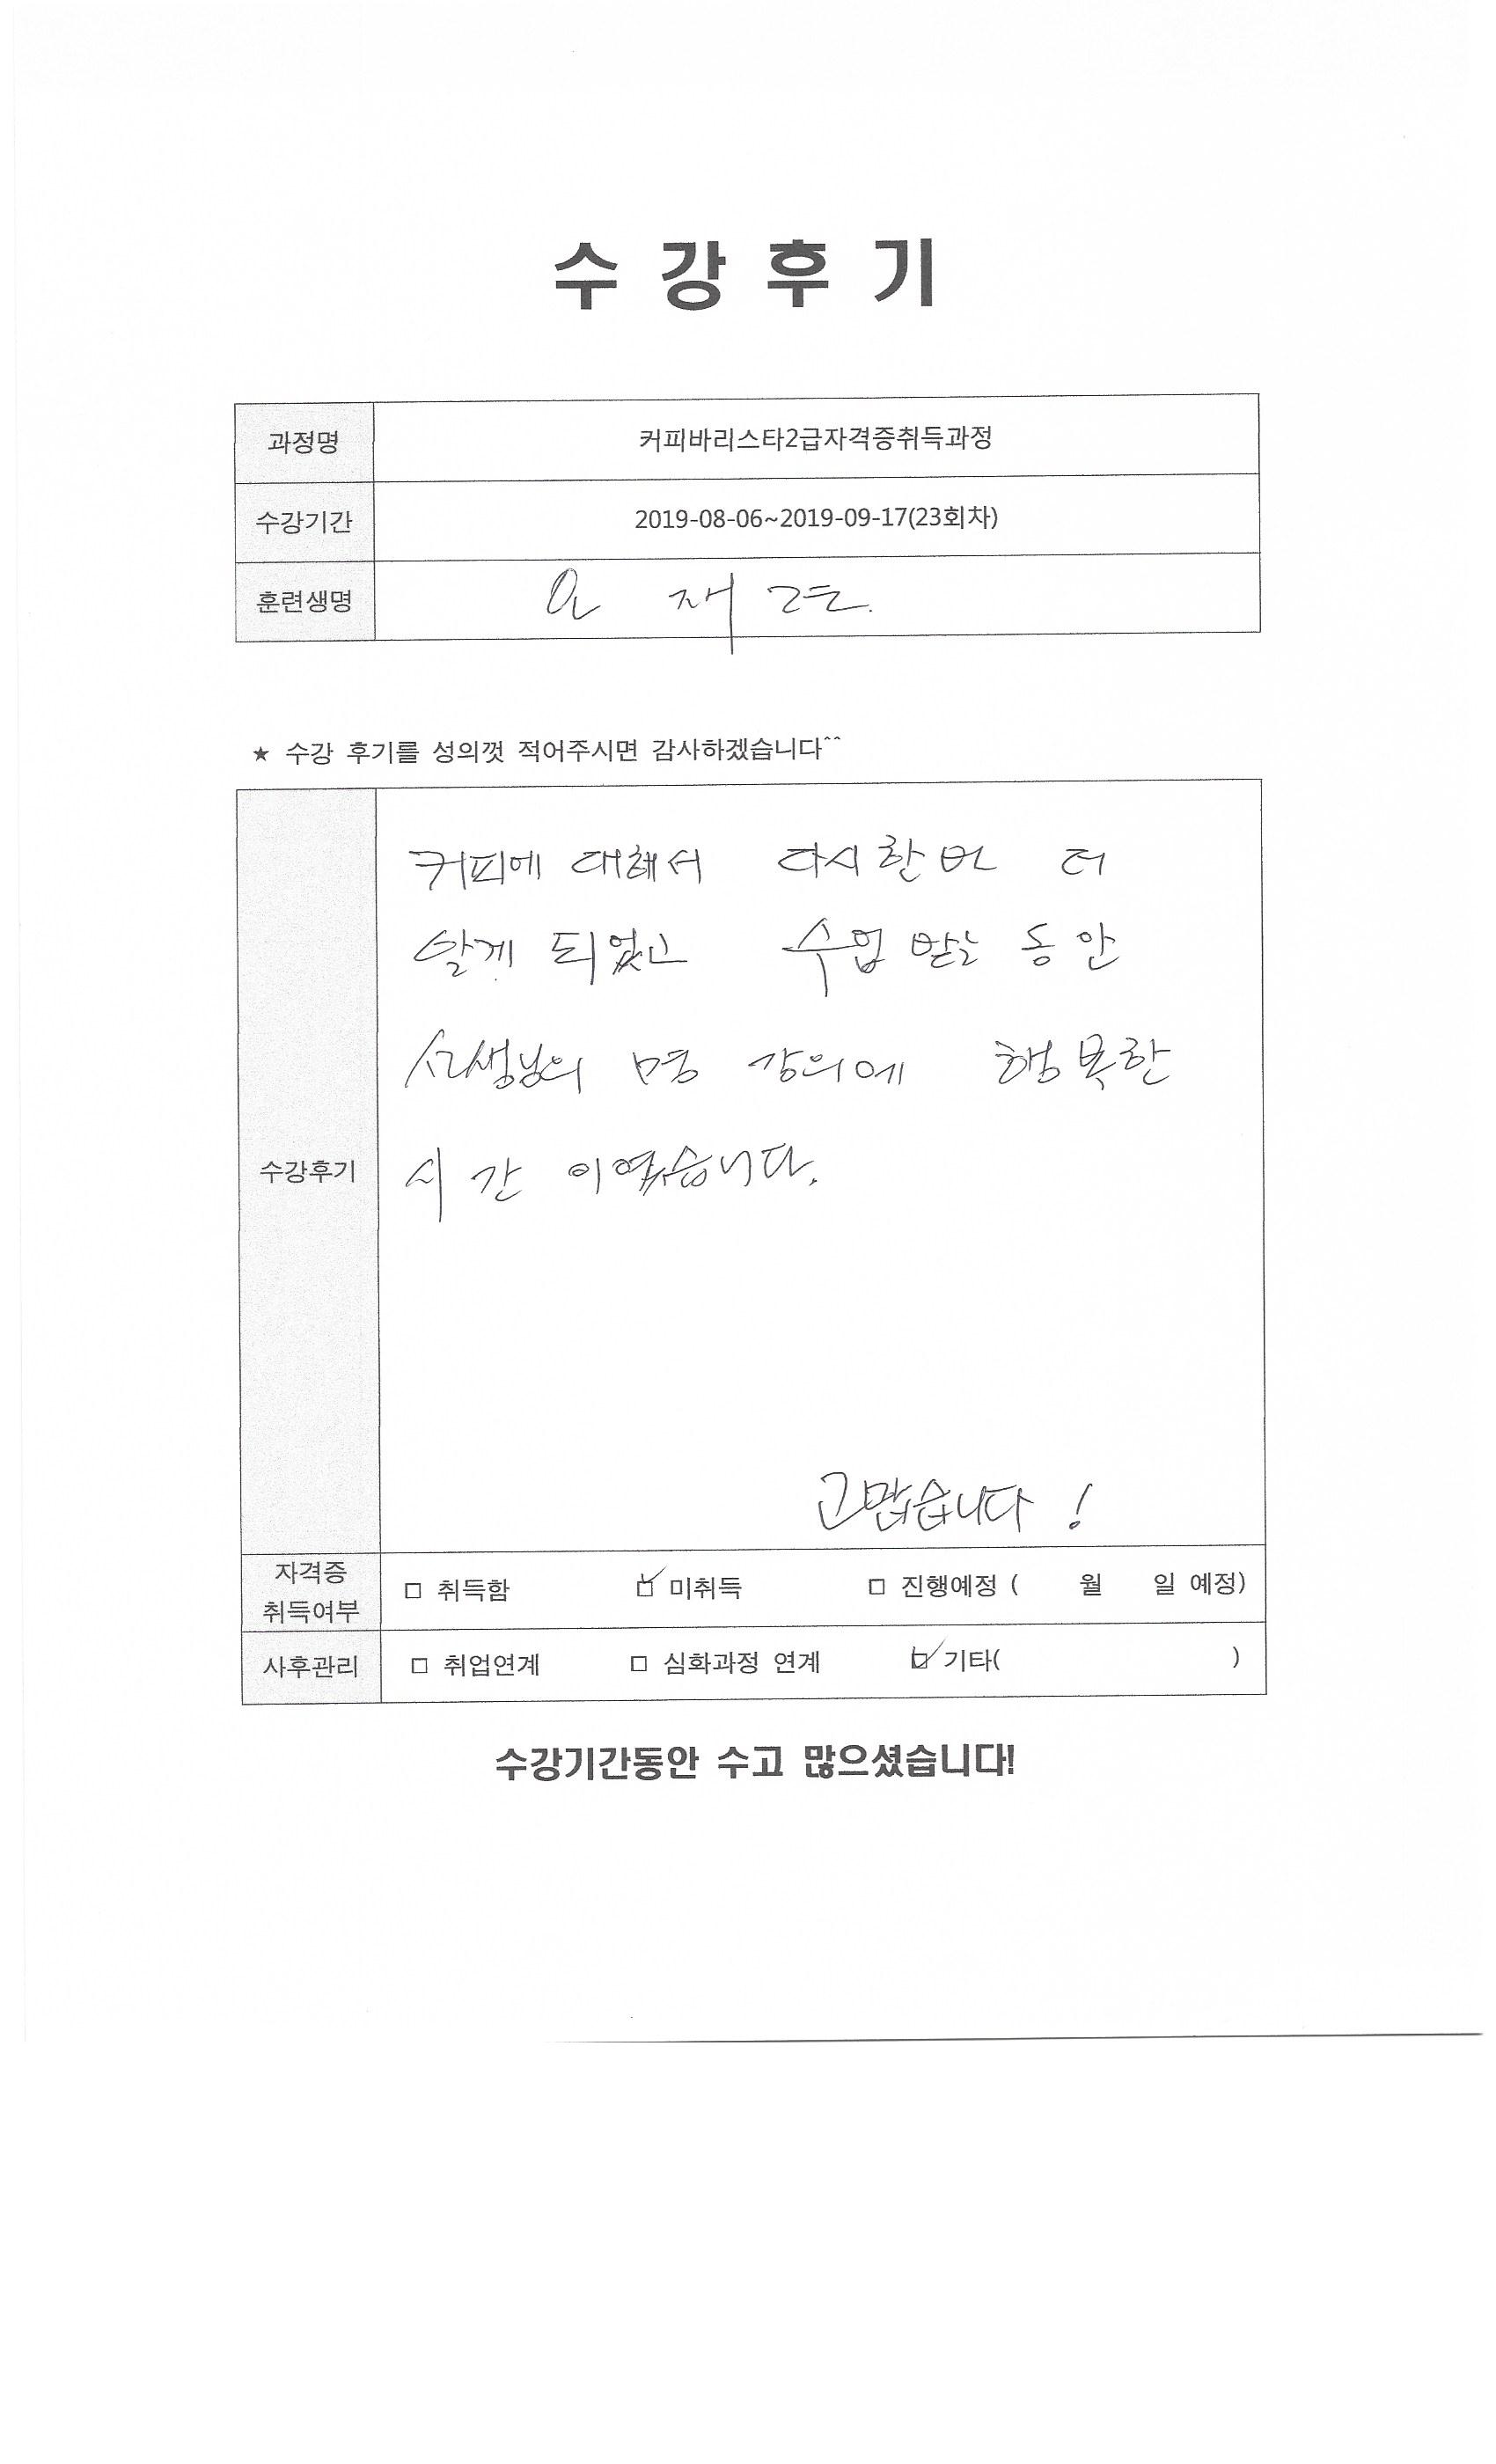 수강후기
과정명 커피바리스타2급자격증취득과정
수강기간 2019-08-06~2019-09-17(23회차)
훈련생명 재
★ 수강 후기를 성의껏 적어주시면 감사하겠습니다^^
커피에 대해서 다시한번 더
알게 되었고 수업 받는 동안
선생님의 명 강의에 행복한
수강후기 시간 이였습니다.
고맙습니다 !
자격증
취득여부 □ 취득함 ☑ 미취득 □ 진행예정 ( 월 일 예정)
사후관리 □ 취업연계 □ 심화과정 연계 ☑ 기타( )
수강기간동안 수고 많으셨습니다!